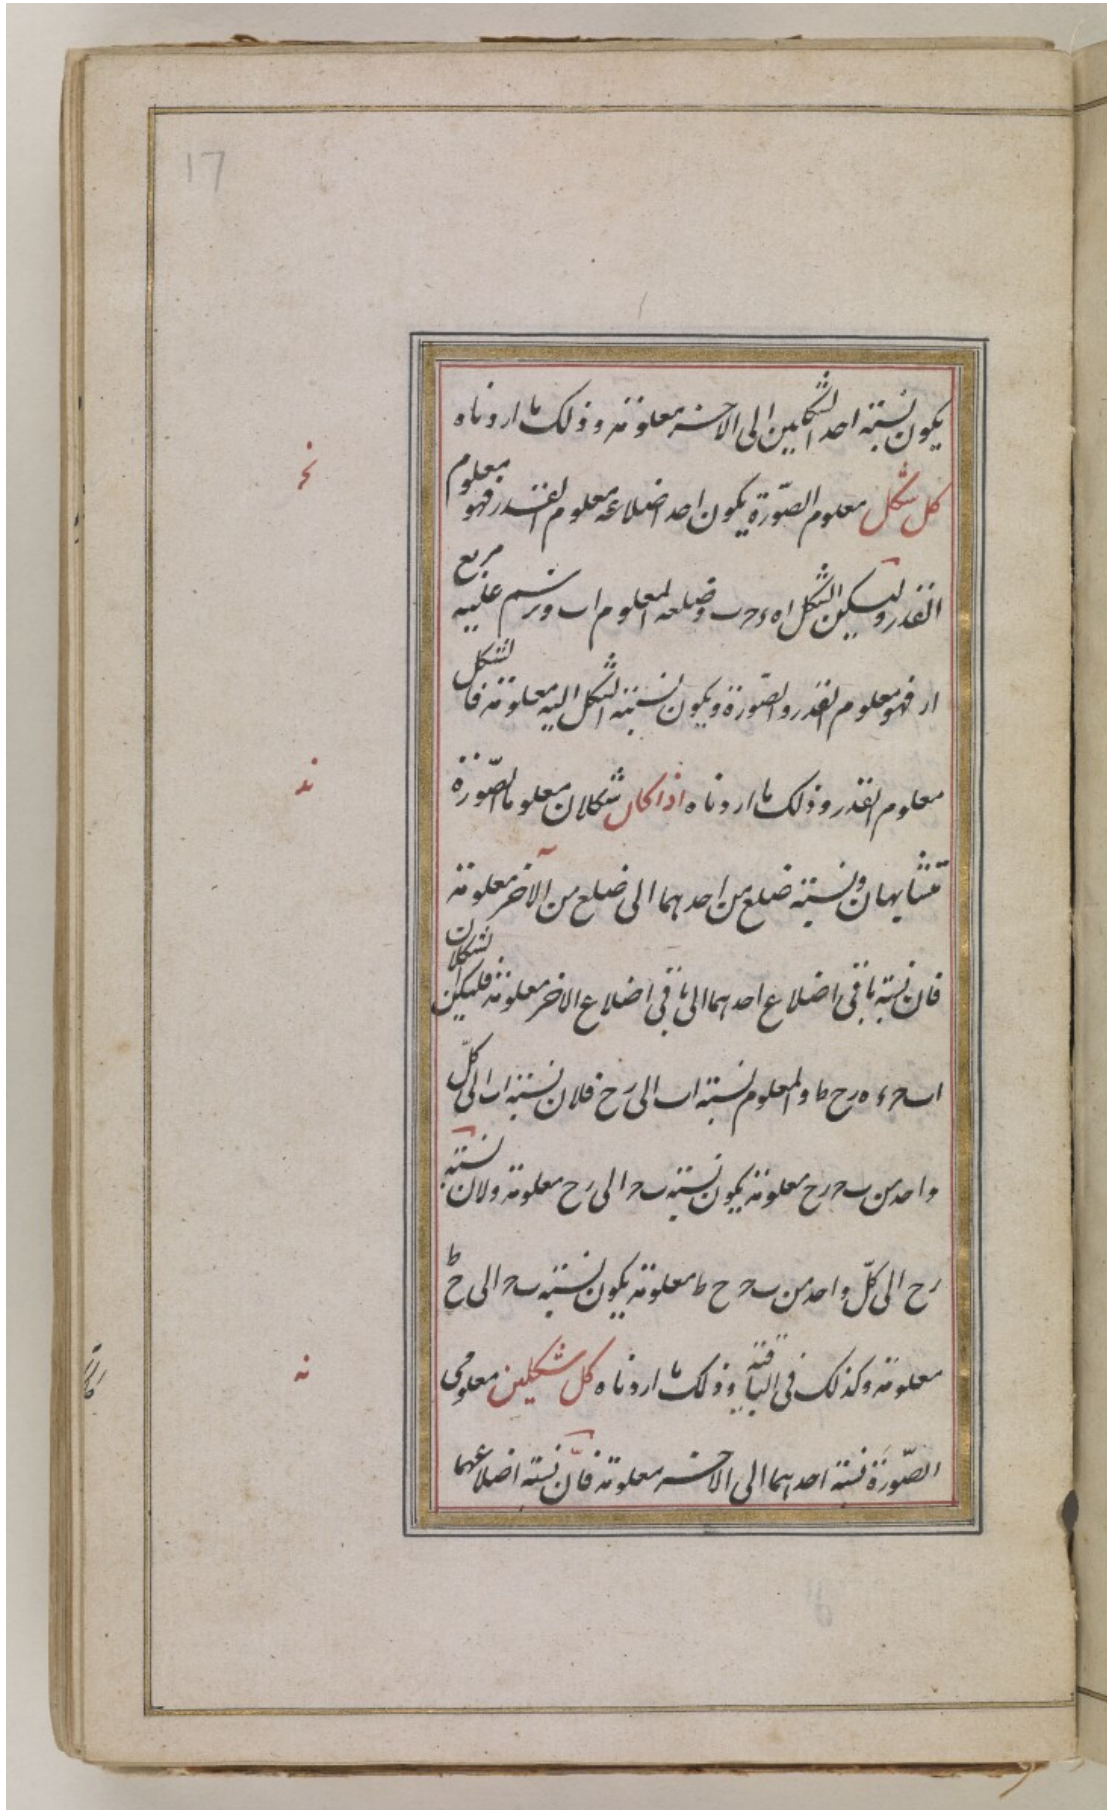 17
يكون نسبة احد الشكلين الى الاخر معلومة وذلك ما اردناه
نج
كل شكل معلوم الصّورة يكون احد اضلاعه معلوم القدر فهو معلوم
القدر وليكن الشكل اه ء حرب وضلعه المعلوم اب ونرسم عليه مربع
ار فهو معلوم القدر والصّورة ويكون نسبة الشكل اليه معلومة فالشكل
ند
معلوم القدر وذلك ما اردناه اذا كان شكلان معلوما الصّورة
متشابهان ونسبة ضلع من احدهما الى ضلع من الآخر معلومة
فان نسبة باقى اضلاع احدهما الى باقى اضلاع الاخر معلومة فليكن الشكلان
اب حء ه رح ط والمعلوم نسبة اب الى رح فلان نسبة اب الى كلّ
واحد من ب ح رح معلومة يكون نسبة ب ح الى رح معلومة ولان نسبة
رح الى كلّ واحد من ب ح ح ط معلومة يكون نسبة ب ح الى ح ط
نه
معلومة وكذلك فى الباقية وذلك ما اردناه كل شكلين معلومى
الصّورة نسبة احدهما الى الاخر معلومة فانّ نسبة اضلاعهما